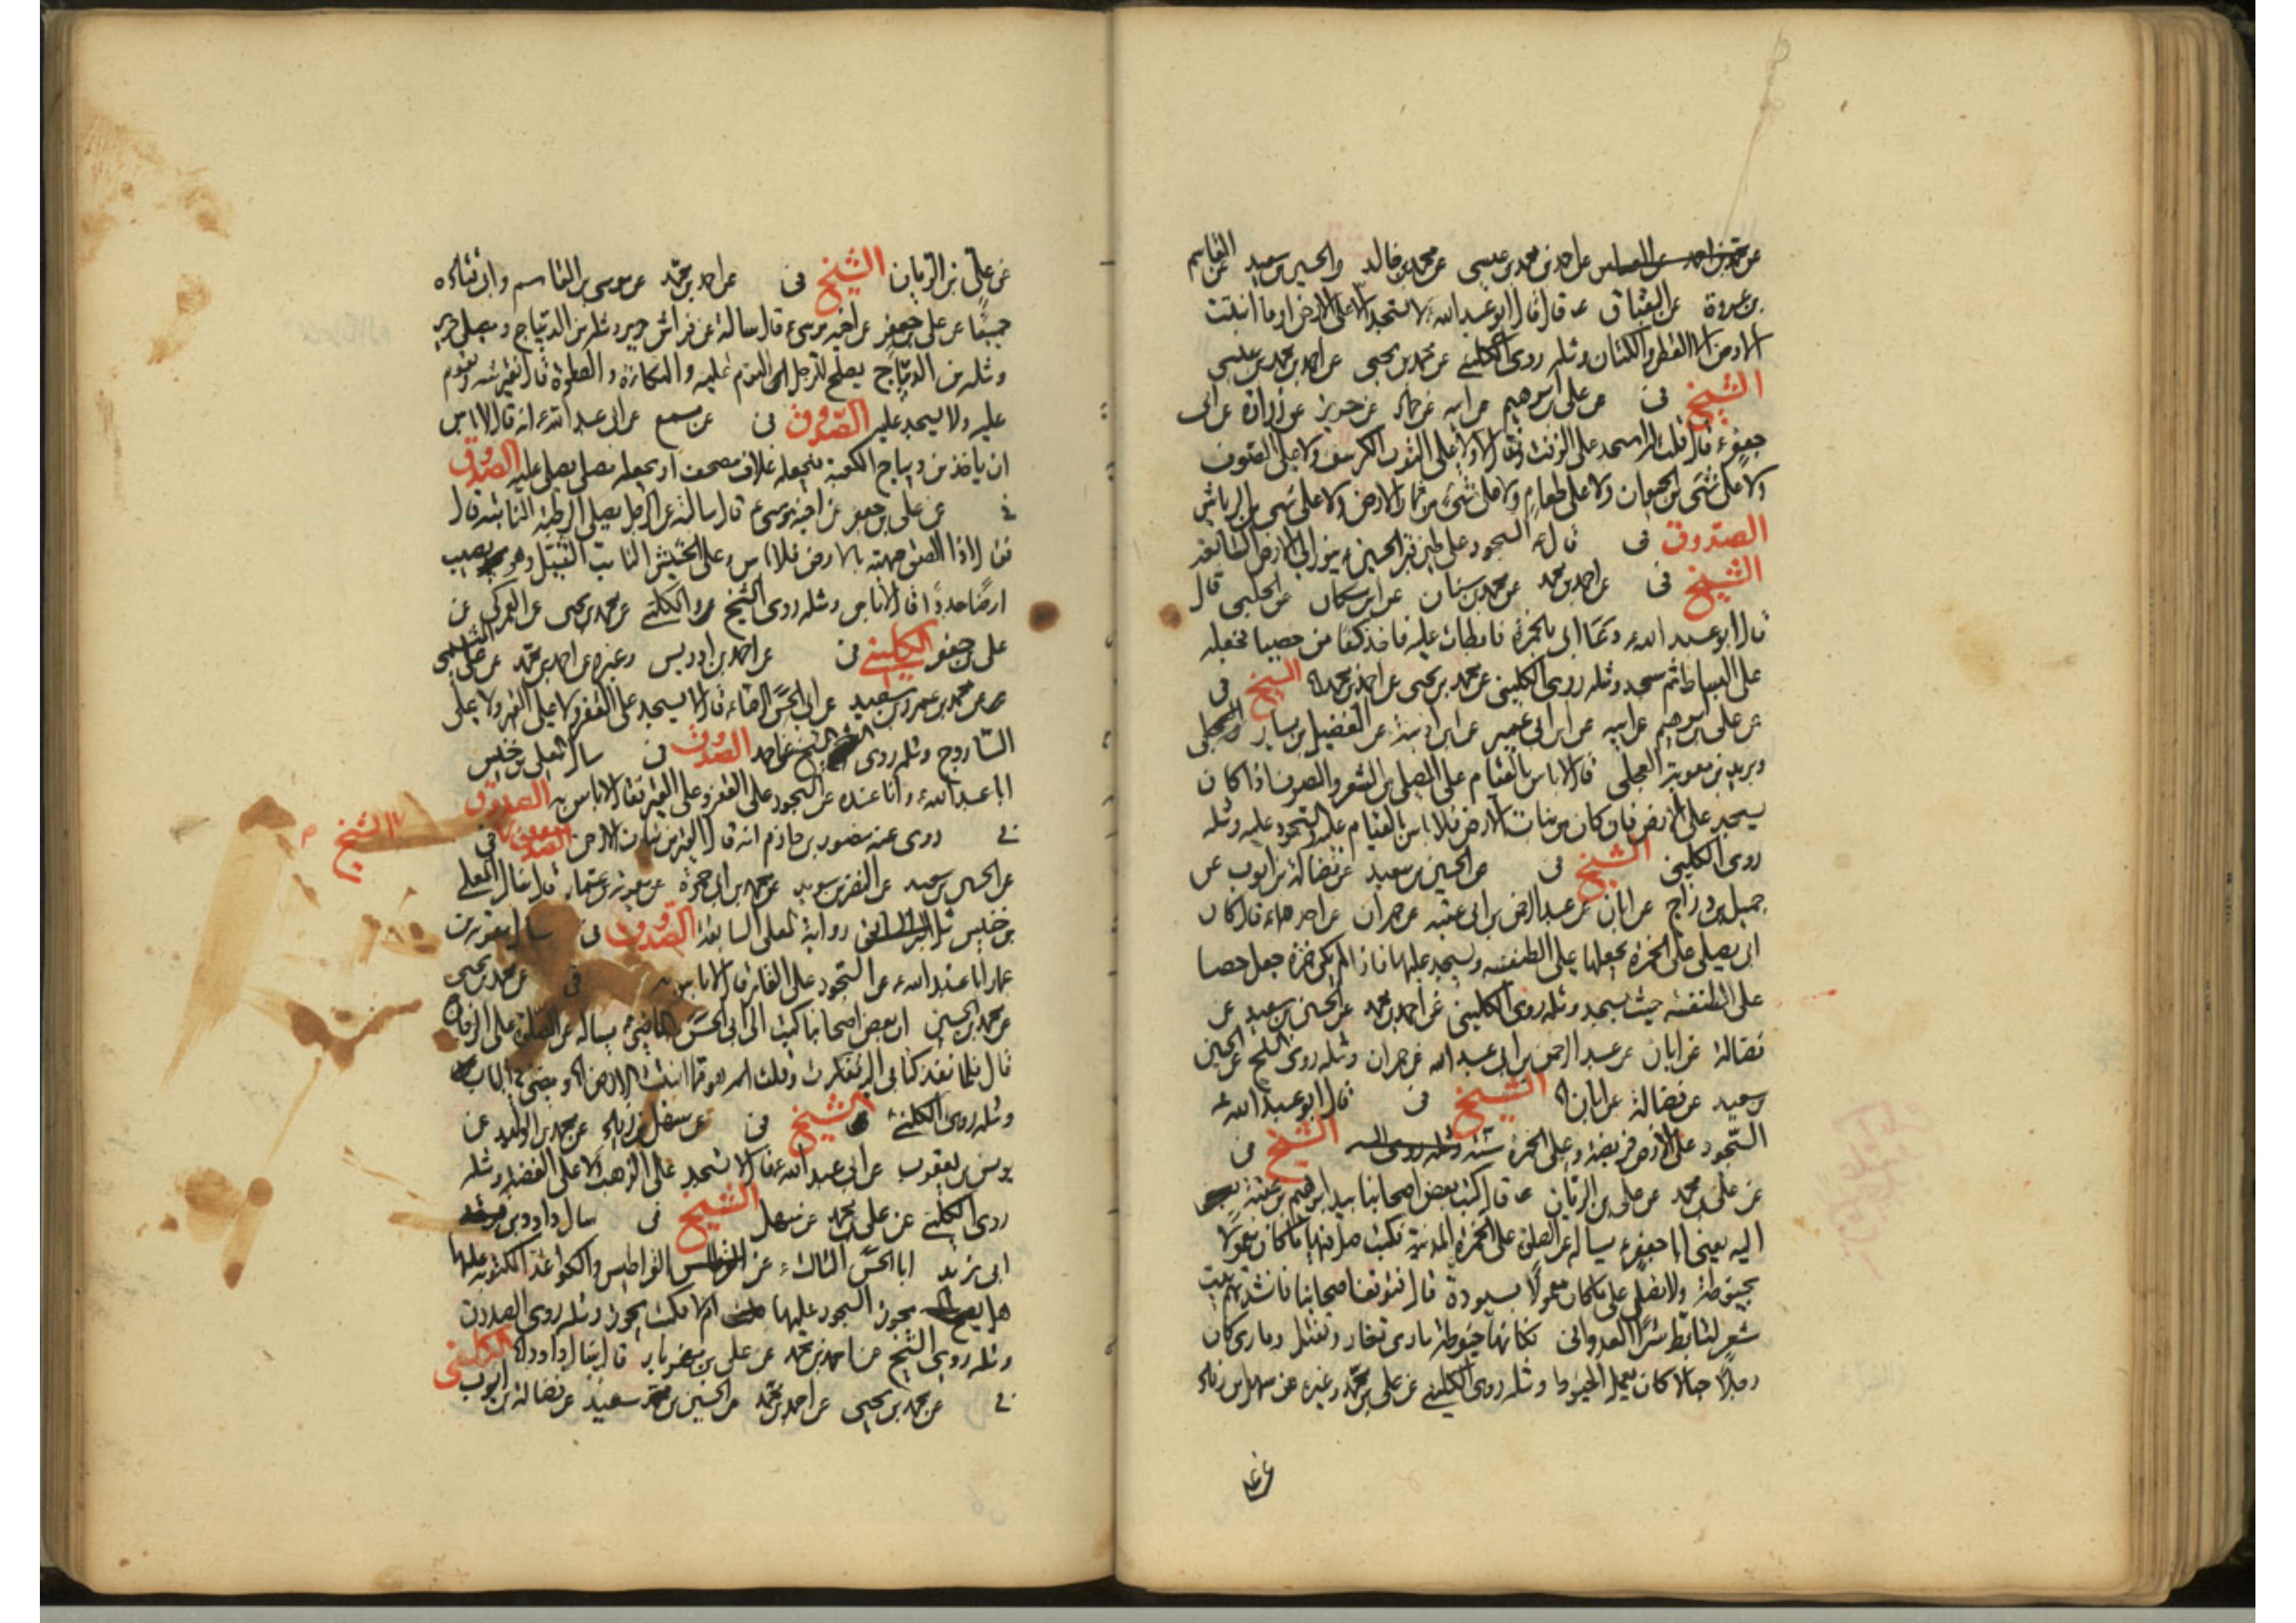 عن احمد بن محمد بن عيسى عن محمد بن خالد والحسين بن سعيد عن القاسم
بن عروة عن البقباق قال قال ابو عبد الله ع لا تسجد الا على الارض او ما انبتت
الارض الا القطن والكتان ومثله روى الكليني عن محمد بن يحيى عن احمد بن محمد بن عيسى
الشيخ في عن على بن ابرهيم عن ابيه عن حماد عن حريز عن زرارة عن ابى
جعفر ع قال قلت له اسجد على الزفت فقال لا ولا على الثوب الكرسف ولا على الصوف
ولا على شئ من الحيوان ولا على طعام ولا على شئ من ثمار الارض ولا على شئ من الرياش
الصدوق في قال ع السجود على طين قبر الحسين ع ينور الى الارض السابعة
الشيخ في عن احمد بن محمد عن محمد بن سنان عن ابن مسكان عن الحلبي قال
قال ابو عبد الله ع دعا ابى بالخمرة فابطات عليه فاخذ كفا من حصبا فجعله
على البساط ثم سجد ومثله روى الكليني عن محمد بن يحيى عن احمد بن محمد الشيخ في
عن على بن ابرهيم عن ابيه عن ابن ابى عمير عن ابن اذينة عن الفضيل بن يسار
وبريد بن معوية العجلي قال لا باس بالقيام على المصلى من الشعر والصوف اذا كان
يسجد على الارض فان كان من نبات الارض فلا باس بالقيام عليه والسجود عليه ومثله
روى الكليني الشيخ في عن الحسين بن سعيد عن فضالة بن ايوب عن
جميل بن دراج عن ابان عن عبد الرحمن بن ابى عبد الله عن حمران عن احدهما ع قال كان
ابى يصلي على الخمرة يجعلها على الطنفسه ويسجد عليها فاذا لم تكن خمرة جعل حصا
على الطنفسه حيث يسجد ومثله روى الكليني عن احمد بن محمد عن الحسين بن سعيد عن
فضالة عن ابان عن عبد الرحمن بن ابى عبد الله عن حمران ومثله روى الشيخ عن الحسين
بن سعيد عن فضالة عن ابان الشيخ في قال ابو عبد الله ع
السجود على الارض فريضة وعلى الخمرة سنة الشيخ في
عن على بن محمد عن على بن الريان قال كتب بعض اصحابنا بيد ابرهيم بن عقبة
اليه يعنى ابا جعفر ع يساله عن الصلوة على الخمرة المدنية فكتب صل فيها ما كان معمولا
بخيوطة ولا تصلي على ما كان معمولا بسيورة قال فتوقف اصحابنا فانشدتهم بيت
شعر لتابط شرا العدواني فكانها خيوطة مارى تغار وتفتل ومارى كان
رجلا حبالا كان يعمل الخيوط ومثله روى الكليني عن على بن محمد وغيره عن سهل بن زياد
عن على بن الريان الشيخ في عن احمد بن محمد عن موسى بن القاسم وابى قتادة
جميعا عن على بن جعفر عن اخيه موسى ع قال سالته عن فراش حرير ومثله من الديباج ومصلى حرير
ومثله من الديباج يصلح للرجل النوم عليه والتكاءة والصلوة قال يفترشه ويقوم
عليه ولا يسجد عليه الصدوق في عن مسمع عن ابى عبد الله ع انه قال لا باس
ان ياخذ من ديباج الكعبة فيجعله غلاف مصحف او يجعله مصلى يصلي عليه الصدوق
في عن على بن جعفر عن اخيه موسى ع قال سالته عن الرجل يصلي على الرطبة النابتة قال
فقال اذا الصق جبهته بالارض فلا باس وعلى الحشيش النابت الثيل وهو يصيب
ارضا جددا قال لا باس ومثله روى الشيخ والكليني عن محمد بن يحيى عن العمركي عن
على بن جعفر الكليني في عن احمد بن ادريس وغيره عن احمد بن محمد عن
عن محمد بن عمرو بن سعيد عن ابى الحسن الرضا ع قال لا يسجد على القفر ولا على القير ولا على
الساروج ومثله روى الشيخ عن احمد الصدوق في سال المعلى بن خنيس
ابا عبد الله ع وانا عنده عن السجود على القفر وعلى القير فقال لا باس به الصدوق
في روى عنه منصور بن حازم انه قال القير من نبات الارض الشيخ في
عن الحسين بن سعيد عن النضر بن سويد عن محمد بن ابى حمزة عن معوية بن عمار قال سال المعلى
بن خنيس رواية المعلى السابقة الصدوق في سال معوية بن
عمار ابا عبد الله ع عن السجود على القار قال لا باس به في عن محمد بن يحيى
عن محمد بن الحسين ان بعض اصحابنا كتب الى ابى الحسن الماضي ع يساله عن الصلوة على الزجاج
قال فلما نفذ كتابى اليه تفكرت وقلت هو مما انبتت الارض
ومثله روى الكليني الشيخ في عن سهل بن زياد عن محمد بن الوليد عن
يونس بن يعقوب عن ابى عبد الله ع قال لا تسجد على الذهب ولا على الفضة ومثله
روى الكليني عن على بن محمد عن سهل الشيخ في سال داود بن
ابى يزيد ابا الحسن الثالث ع عن القراطيس والكواغذ المكتوبة عليها
هل يجوز السجود عليها ام لا فكتب يجوز ومثله روى الصدوق
ومثله روى الشيخ عن احمد بن محمد عن على بن مهزيار قال سال داود الكليني
في عن محمد بن يحيى عن احمد بن محمد عن الحسين بن سعيد عن فضالة بن ايوب